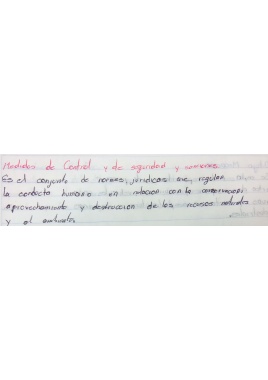 Medidas de Control y de seguridad y sanciones
Es el conjunto de normas jurídicas que regulan
la conducta humana en relación con la conservación
aprovechamiento y destrucción de los recursos naturales
y el ambiente.